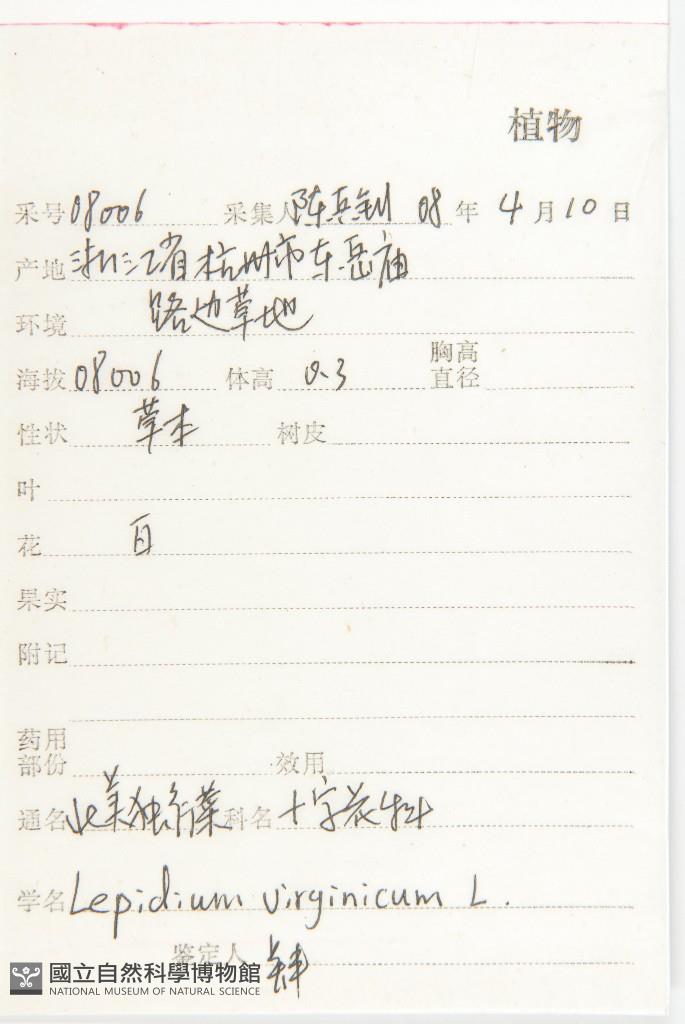 植物
采号 08006 采集人 陈 钊 08 年 4 月 10 日
产地 浙江省杭州市东岳庙
环境 路边草地
海拔 08006 体高 0.3 胸高直径
性状 草本 树皮
叶
花 白
果实
附记
药用部份 效用
通名 北美独行菜 科名 十字花科
学名 Lepidium virginicum L.
鉴定人
國立自然科學博物館
NATIONAL MUSEUM OF NATURAL SCIENCE